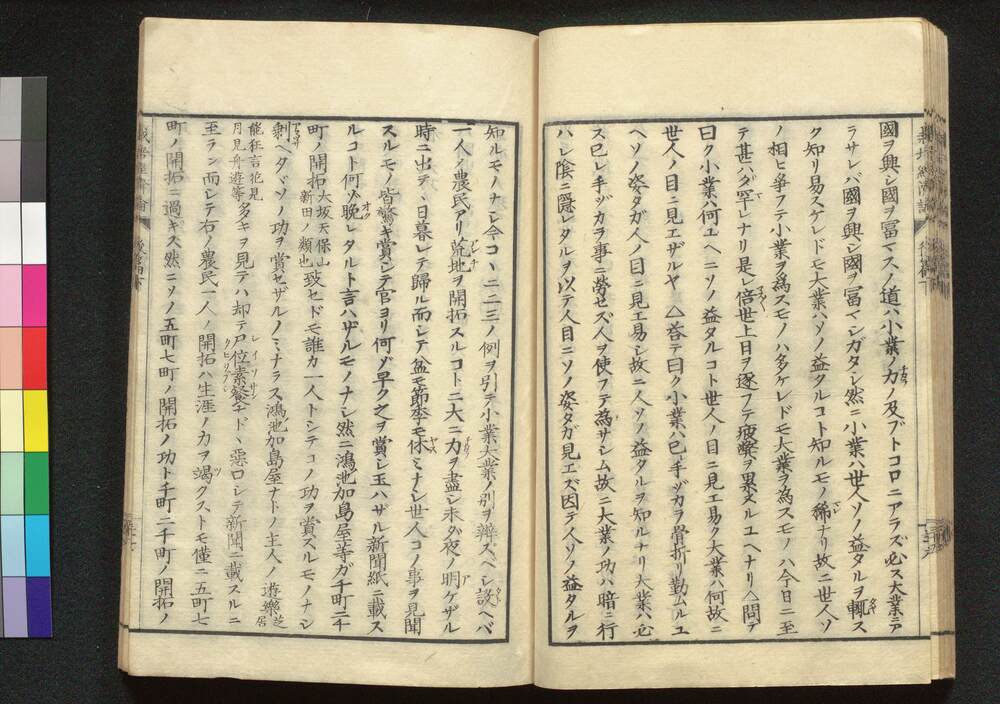 國ヲ興シ國ヲ冨マスノ道ハ小業ノ力ノ及ブトコロニアラズ必ス大業ニア
ラサレバ國ヲ興シ國ヲ冨マシガタシ然ニ小業ハ世人ソノ益タルヲ輙ス
ク知リ易スケレドモ大業ハソノ益タルコト知ルモノ稀ナリ故ニ世人ソ
ノ相ヒ爭フテ小業ヲ為スモノハ多ケレドモ大業ヲ為スモノハ今日ニ至
テ甚ハタ罕レナリ是レ倍世上日ヲ逐フテ疲弊ヲ累子ルユヘナリ△問テ
曰ク小業ハ何ユヘニソノ益タルコト世人ノ目ニ見エ易ク大業ハ何故ニ
世人ノ目ニ見エザルヤ△荅テ曰ク小業ハ已手ヅカラ骨折リ勤ムルユ
ヘソノ姿タガ人ノ目ニ見エ易シ故ニ人ソノ益タルヲ知ルナリ大業ハ必
ス已レ手ヅカラ事ニ勞セズ人ヲ使フテ為サシム故ニ大業ノ功ハ暗ニ行
ハレ陰ニ隱レタルヲ以テ人目ニソノ姿タガ見エズ因テ人ソノ益タルヲ
知ルモノナシ今コヽニ二三ノ例ヲ引テ小業大業ノ別ヲ辨スヘシ設ヘバ
一人ノ農民アリ荒地ヲ開拓スルコトニ大ニ力ヲ盡シ未ダ夜ノ明ケザル
時ニ出テヽ日暮レテ歸ル而シテ盆モ節季モ休ミナシ世人コノ事ヲ見聞
スルモノ皆驚キ賞シテ官ヨリ何ゾ早ク之ヲ賞シ玉ハザル新聞紙ニ載ス
ルコト何ゾ晩レタルト言ハザルモノナシ然ニ鴻池加島屋等ガ千町二千
町ノ開拓大坂天保山新田ノ類也致セドモ誰カ一人トシテコノ功ヲ賞スルモノナシ
剰ヘタヾソノ功ヲ賞セザルノミナラス鴻池加島屋ナトノ主人ノ遊樂芝居
能狂言花見月見舟遊等多キヲ見テハ却テ尸位素餐ナドヽ惡口シテ新聞ニ載スルニ
至ラン而シテ右ノ農民一人ノ開拓ハ生涯ノ力ヲ竭クストモ僅ニ五町七
町ノ開拓ニ過キス然ニソノ五町七町ノ開拓ノ功ト千町二千町ノ開拓ノ